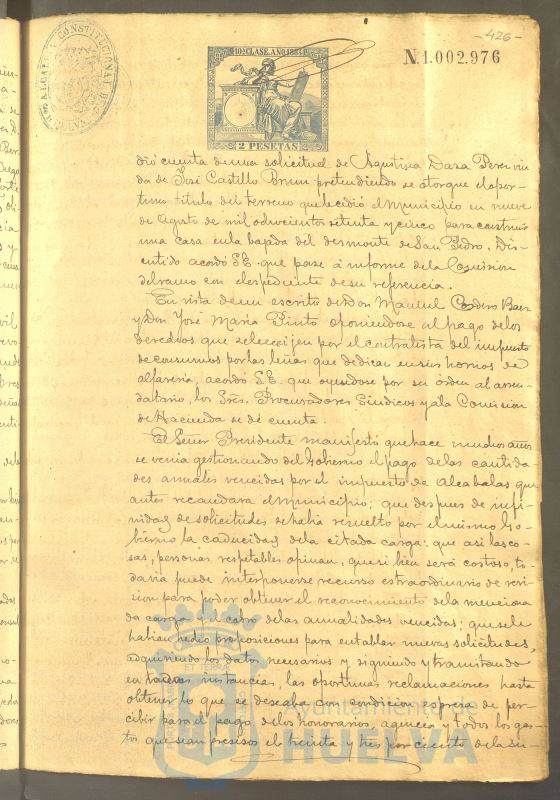 -426-
N.1.002.976
ALCALDIA CONSTITUCIONAL DE HUELVA
10ª CLASE. AÑO 1884
2 PESETAS
dió cuenta de una solicitud de Agustina Daza Perez viu
da de José Castillo Brun pretendiendo se otorgue el opor-
tuno titulo del terreno que le cedió el Municipio en nueve
de Agosto de mil ochocientos setenta y cinco para construir
una casa en la bajada del desmonte de San Pedro. Dis-
cutido acordó S.E. que pase á informe de la Comision
del ramo con el espediente de su referencia.
En vista de un escrito de Don Manuel Cordero Baez
y Don José Maria Pinto oponiendose al pago de los
derechos que se le exijen por el contratista del impuesto
de consumos por las leñas que dedican en sus hornos de
alfareria, acordó S.E. que oyendose por su órden al arren
datario, los Sres. Procuradores Sindicos y á la Comision
de Hacienda se dé cuenta.
El Señor Presidente manifestó que hace muchos años
se venia gestionando del Gobierno el pago de las cantida-
des anuales vencidas por el impuesto de Alcabalas que
antes recaudara el Municipio; que despues de infi-
nidad de solicitudes se habia resuelto por el mismo Go-
bierno la caducidad de la citada carga: que asi las co-
sas, personas respetables opinan, que si bien será costoso, to-
davia puede interponerse recurso estraordinario de revi-
sion para poder obtener el reconocimiento de la menciona
da carga y el cobro de las anualidades vencidas; que se le
habian hecho proposiciones para entablar nuevas solicitudes,
adquiriendo los datos necesarios y siguiendo y tramitando
en todas instancias, las oportunas reclamaciones hasta
obtener lo que se deseaba con condicion espresa de per-
cibir para el pago de los honorarios, agencia y todos los gas-
tos que sean precisos el treinta y tres por ciento de la su-
Ayuntamiento de
HUELVA